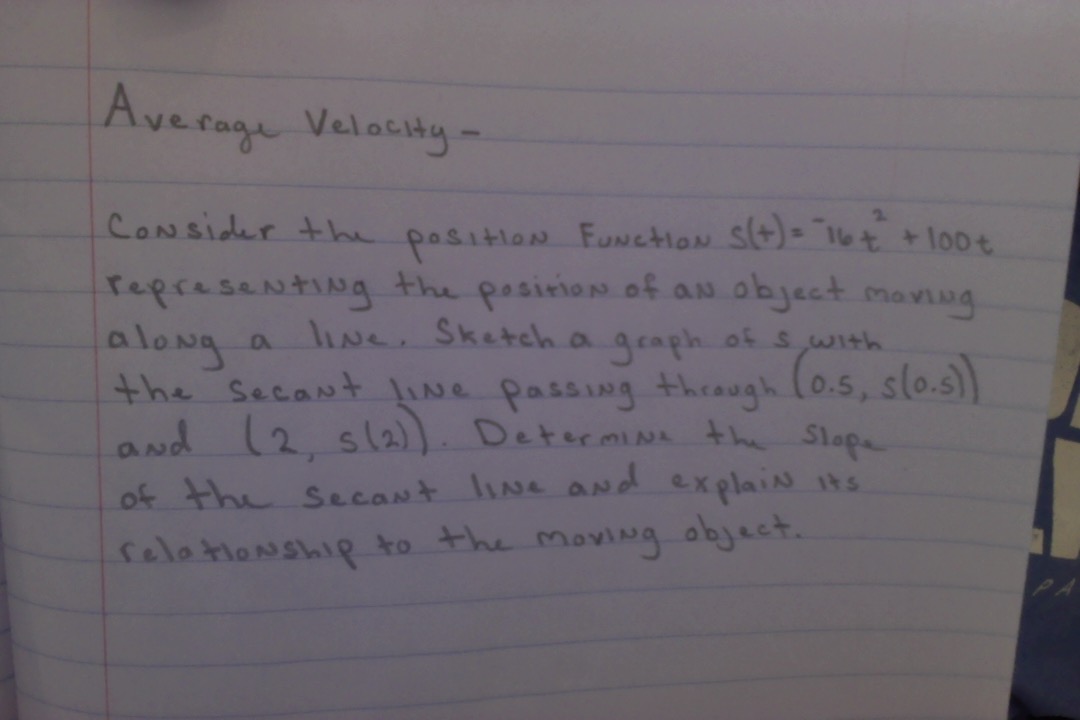 Average Velocity-
Consider the position Function s(t)=⁻16t² +100t
representing the position of an object moving
along a line. Sketch a graph of s with
the secant line passing through (0.5, s(0.5))
and (2, s(2)). Determine the slope
of the secant line and explain its
relationship to the moving object.
PA